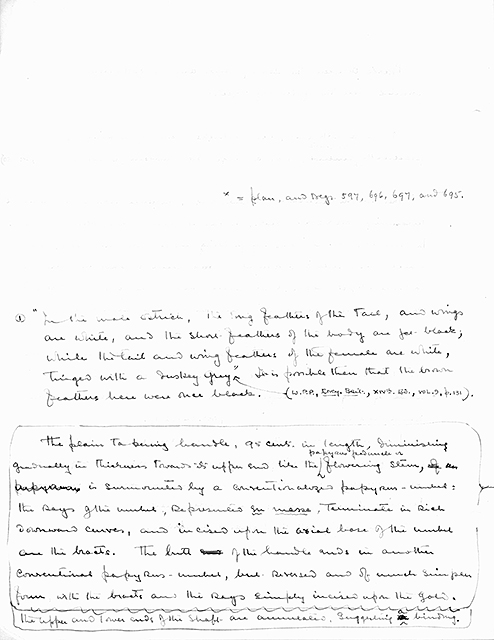 * = plan, and Negs. 597, 696, 697, and 695.
① "In the male ostrich, the long feathers of the tail, and wings
are white, and the short feathers of the body are jet black;
while the tail and wing feathers of the female are white,
tinged with a duskey grey". It is possible then that the brown
feathers here were once black. (W.P.P., Ency. Brit., XIV Ed., VOL. , p. 151).
The plain tapering handle, 95 cent. in length, diminishing
papyrus peduncle or
gradually in thickness towards its upper end like the flowering stem,
is surmounted by a conventionalized papyrus-umbel:
the rays of the umbel, represented en masse, terminate in rich
downward curves, and incised upon the axial base of the umbel
are the bracts. The butt of the handle ends in another
conventional papyrus-umbel, but reversed and of much simpler
form with the bracts and the rays simply incised upon the gold.
The upper and lower ends of the shaft are annulated, suggesting a binding.